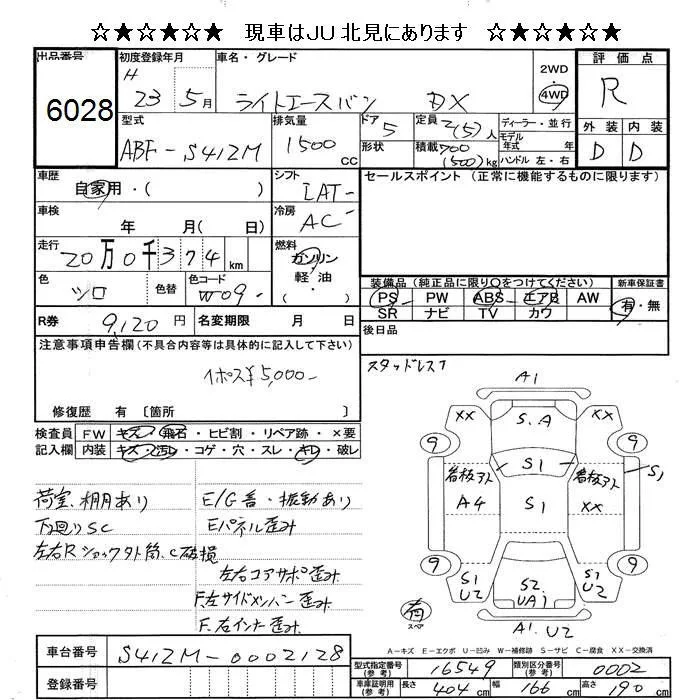 ☆★☆★☆★ 現車はJU北見にあります ☆★☆★☆★
出品番号 初度登録年月 車名・グレード 2WD 評価点
6028 H 23 5月 ライトエースバン DX 4WD R
型式 排気量 ドア 定員 ディーラー・並行 外装 内装
ABF-S412M 1500 CC 5 2(5)人 モデル年式 年 D D
形状 積載 700 (500)kg ハンドル 左・右
車歴 シフト セールスポイント (正常に機能するものに限ります)
自家用・( ) IAT-
車検 冷房
年 月(日) AC
走行 燃料
20万0千374km ガソリン
軽油
・( )
色 色替 色コード 装備品 (純正品に限り○をつけてください) 新車保証書
シロ W09- PS PW ABS エアB AW 有・無
SR ナビ TV カワ
R券 9,120円 名変期限 月 日 後日品
注意事項申告欄(不具合内容等は具体的に記入して下さい) スタッドレス
イポス¥5,000-
修復歴 有 〔箇所 〕
検査員 FW キズ・飛石・ヒビ割・リペア跡・×要
記入欄 内装 キズ・汚レ・コゲ・穴・スレ・キレ・破レ
荷室、棚穴あり E/G音・振動あり
下廻りSC Eパネル歪み
左右Rショック外筒、C破損
左右コアサポ歪み
F.左サイドメンバー歪み
F.左右インナー歪み
A1
XX S.A XX
9 9
S1
看板アト 看板アト S1
A4 S1 XX
9 9
S1 S2 S1
U2 UA1 U2
有 スペア
A1. U2
A-キズ E-エクボ U-凹み W-補修跡 S-サビ C-腐食 XX-交換済
車台番号 S412M-0002128
型式指定番号(参考) 16549 類別区分番号(参考) 0002
登録番号
車庫証明用(参考) 長さ 404cm 幅 166cm 高さ 190cm